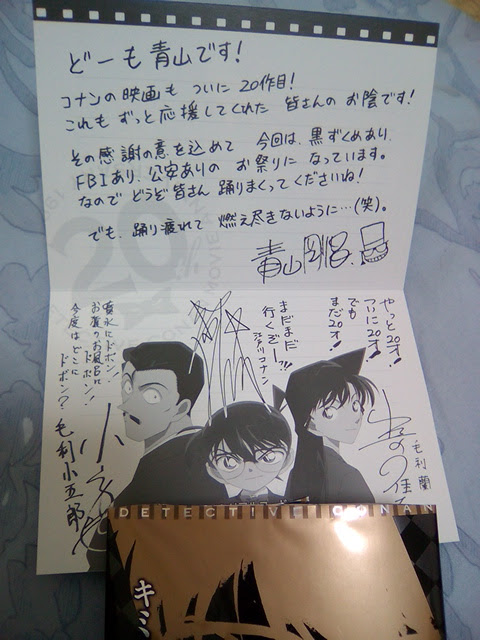 どーも青山です!
コナンの映画も ついに20作目!
これも ずっと応援してくれた 皆さんのお陰です!
その感謝の意を込めて 今回は、黒ずくめあり、
FBIあり、公安ありの お祭りに なっています。
なので どうぞ皆さん 踊りまくってくださいね!
でも、踊り疲れて 燃え尽きないように…(笑)。
青山剛昌
20
やっと20才!
ついに20才!
でも
まだ20才!
毛利 蘭
まだまだ
行くぞーっ!!
江戸川コナン
噴水にドボン!
お寺のお風呂に
ドボン!
今度はどこに
ドボン?
毛利小五郎
DETECTIVE CONAN
キミ